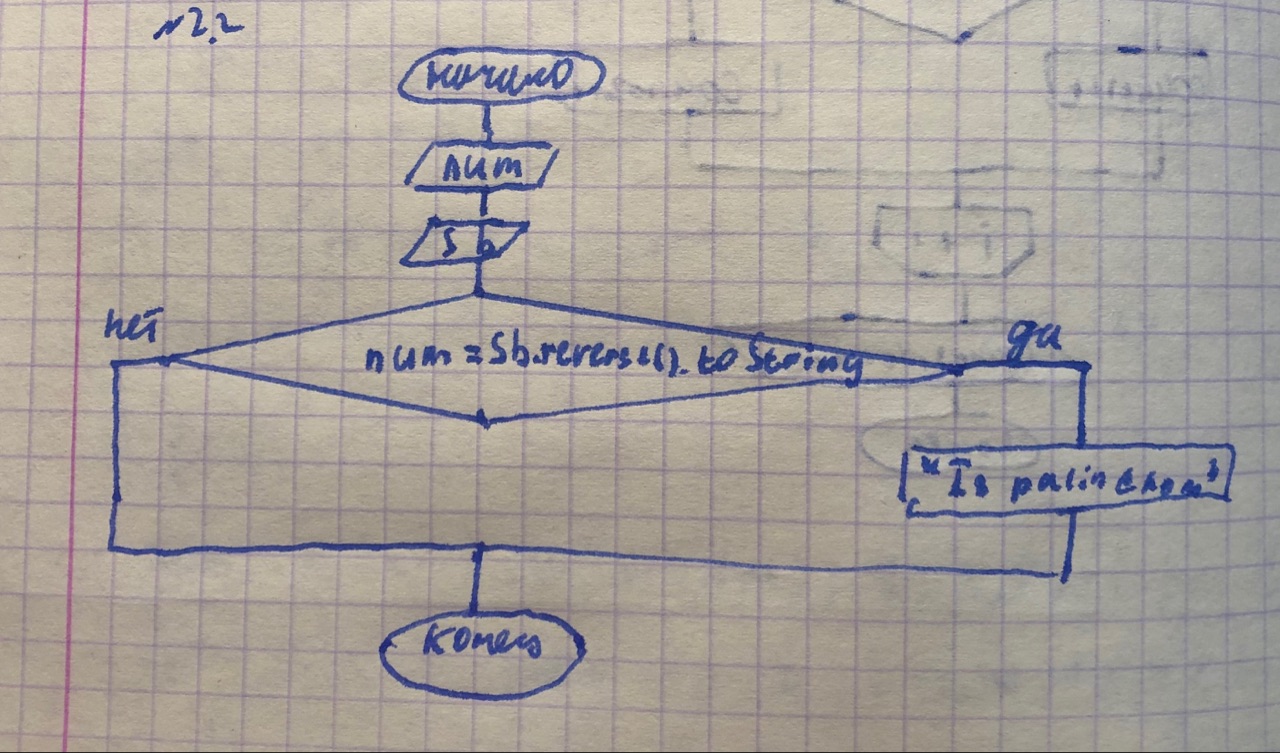 №2.2
начало
num
Sb
num = Sb.reverse().toString
нет
да
"Is palindrom"
конец